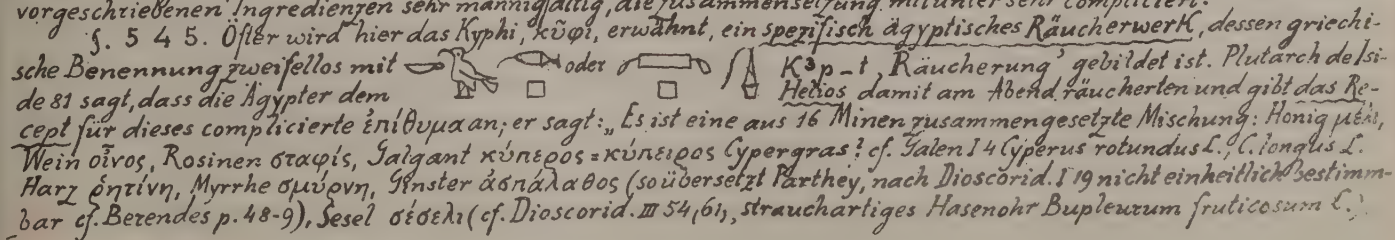 vorgeschriebenen Ingredienzen sehr mannigfaltig, die Zusammensetzung mitunter sehr compliciert.
§. 5 4 5. Öfter wird hier das Kyphi, κῦφι, erwähnt, ein spezifisch ägyptisches Räucherwerk, dessen griechi-
sche Benennung zweifellos mit oder K³p-t „Räucherung" gebildet ist. Plutarch de Isi-
de 81 sagt, dass die Ägypter dem Helios damit am Abend räucherten und gibt das Re-
cept für dieses complicierte ἐπίθυμα an; er sagt: „Es ist eine aus 16 Minen zusammengesetzte Mischung: Honig μέλι,
Wein οἶνος, Rosinen σταφίς, Galgant κύπερος = κύπειρος Cypergras? cf. Galen I 4 Cyperus rotundus L., C. longus L.
Harz ῥητίνη, Myrrhe σμύρνη, Ginster ἀσπάλαθος (so übersetzt Parthey, nach Dioscorid. I 19 nicht einheitlich bestimm-
bar cf. Berendes p. 48-9), Sesel σέσελι (cf. Dioscorid. III 54, 61, strauchartiges Hasenohr Bupleurum fruticosum L.)